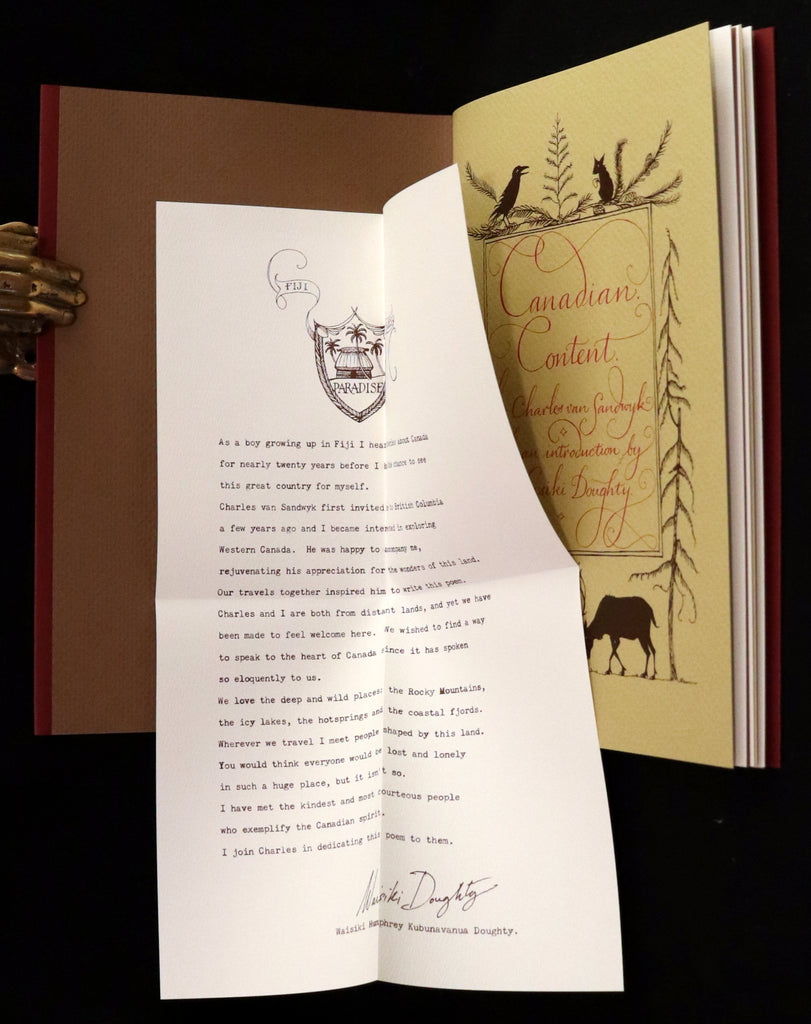 FIJI
PARADISE
As a boy growing up in Fiji I about Canada
for nearly twenty years before I chance to see
this great country for myself.
Charles van Sandwyk first invited to British Columbia
a few years ago and I became interested in exploring
Western Canada. He was happy to accompany me,
rejuvenating his appreciation for the wonders of this land.
Our travels together inspired him to write this poem.
Charles and I are both from distant lands, and yet we have
been made to feel welcome here. We wished to find a way
to speak to the heart of Canada since it has spoken
so eloquently to us.
We love the deep and wild places: the Rocky Mountains,
the icy lakes, the hotsprings and the coastal fjords.
Wherever we travel I meet people shaped by this land.
You would think everyone would be lost and lonely
in such a huge place, but it isn't so.
I have met the kindest and most courteous people
who exemplify the Canadian spirit.
I join Charles in dedicating this poem to them.
Waisiki Doughty
Waisiki Humphrey Kubunavanua Doughty.
Canadian.
Content.
Charles van Sandwyk
an introduction by
Doughty.